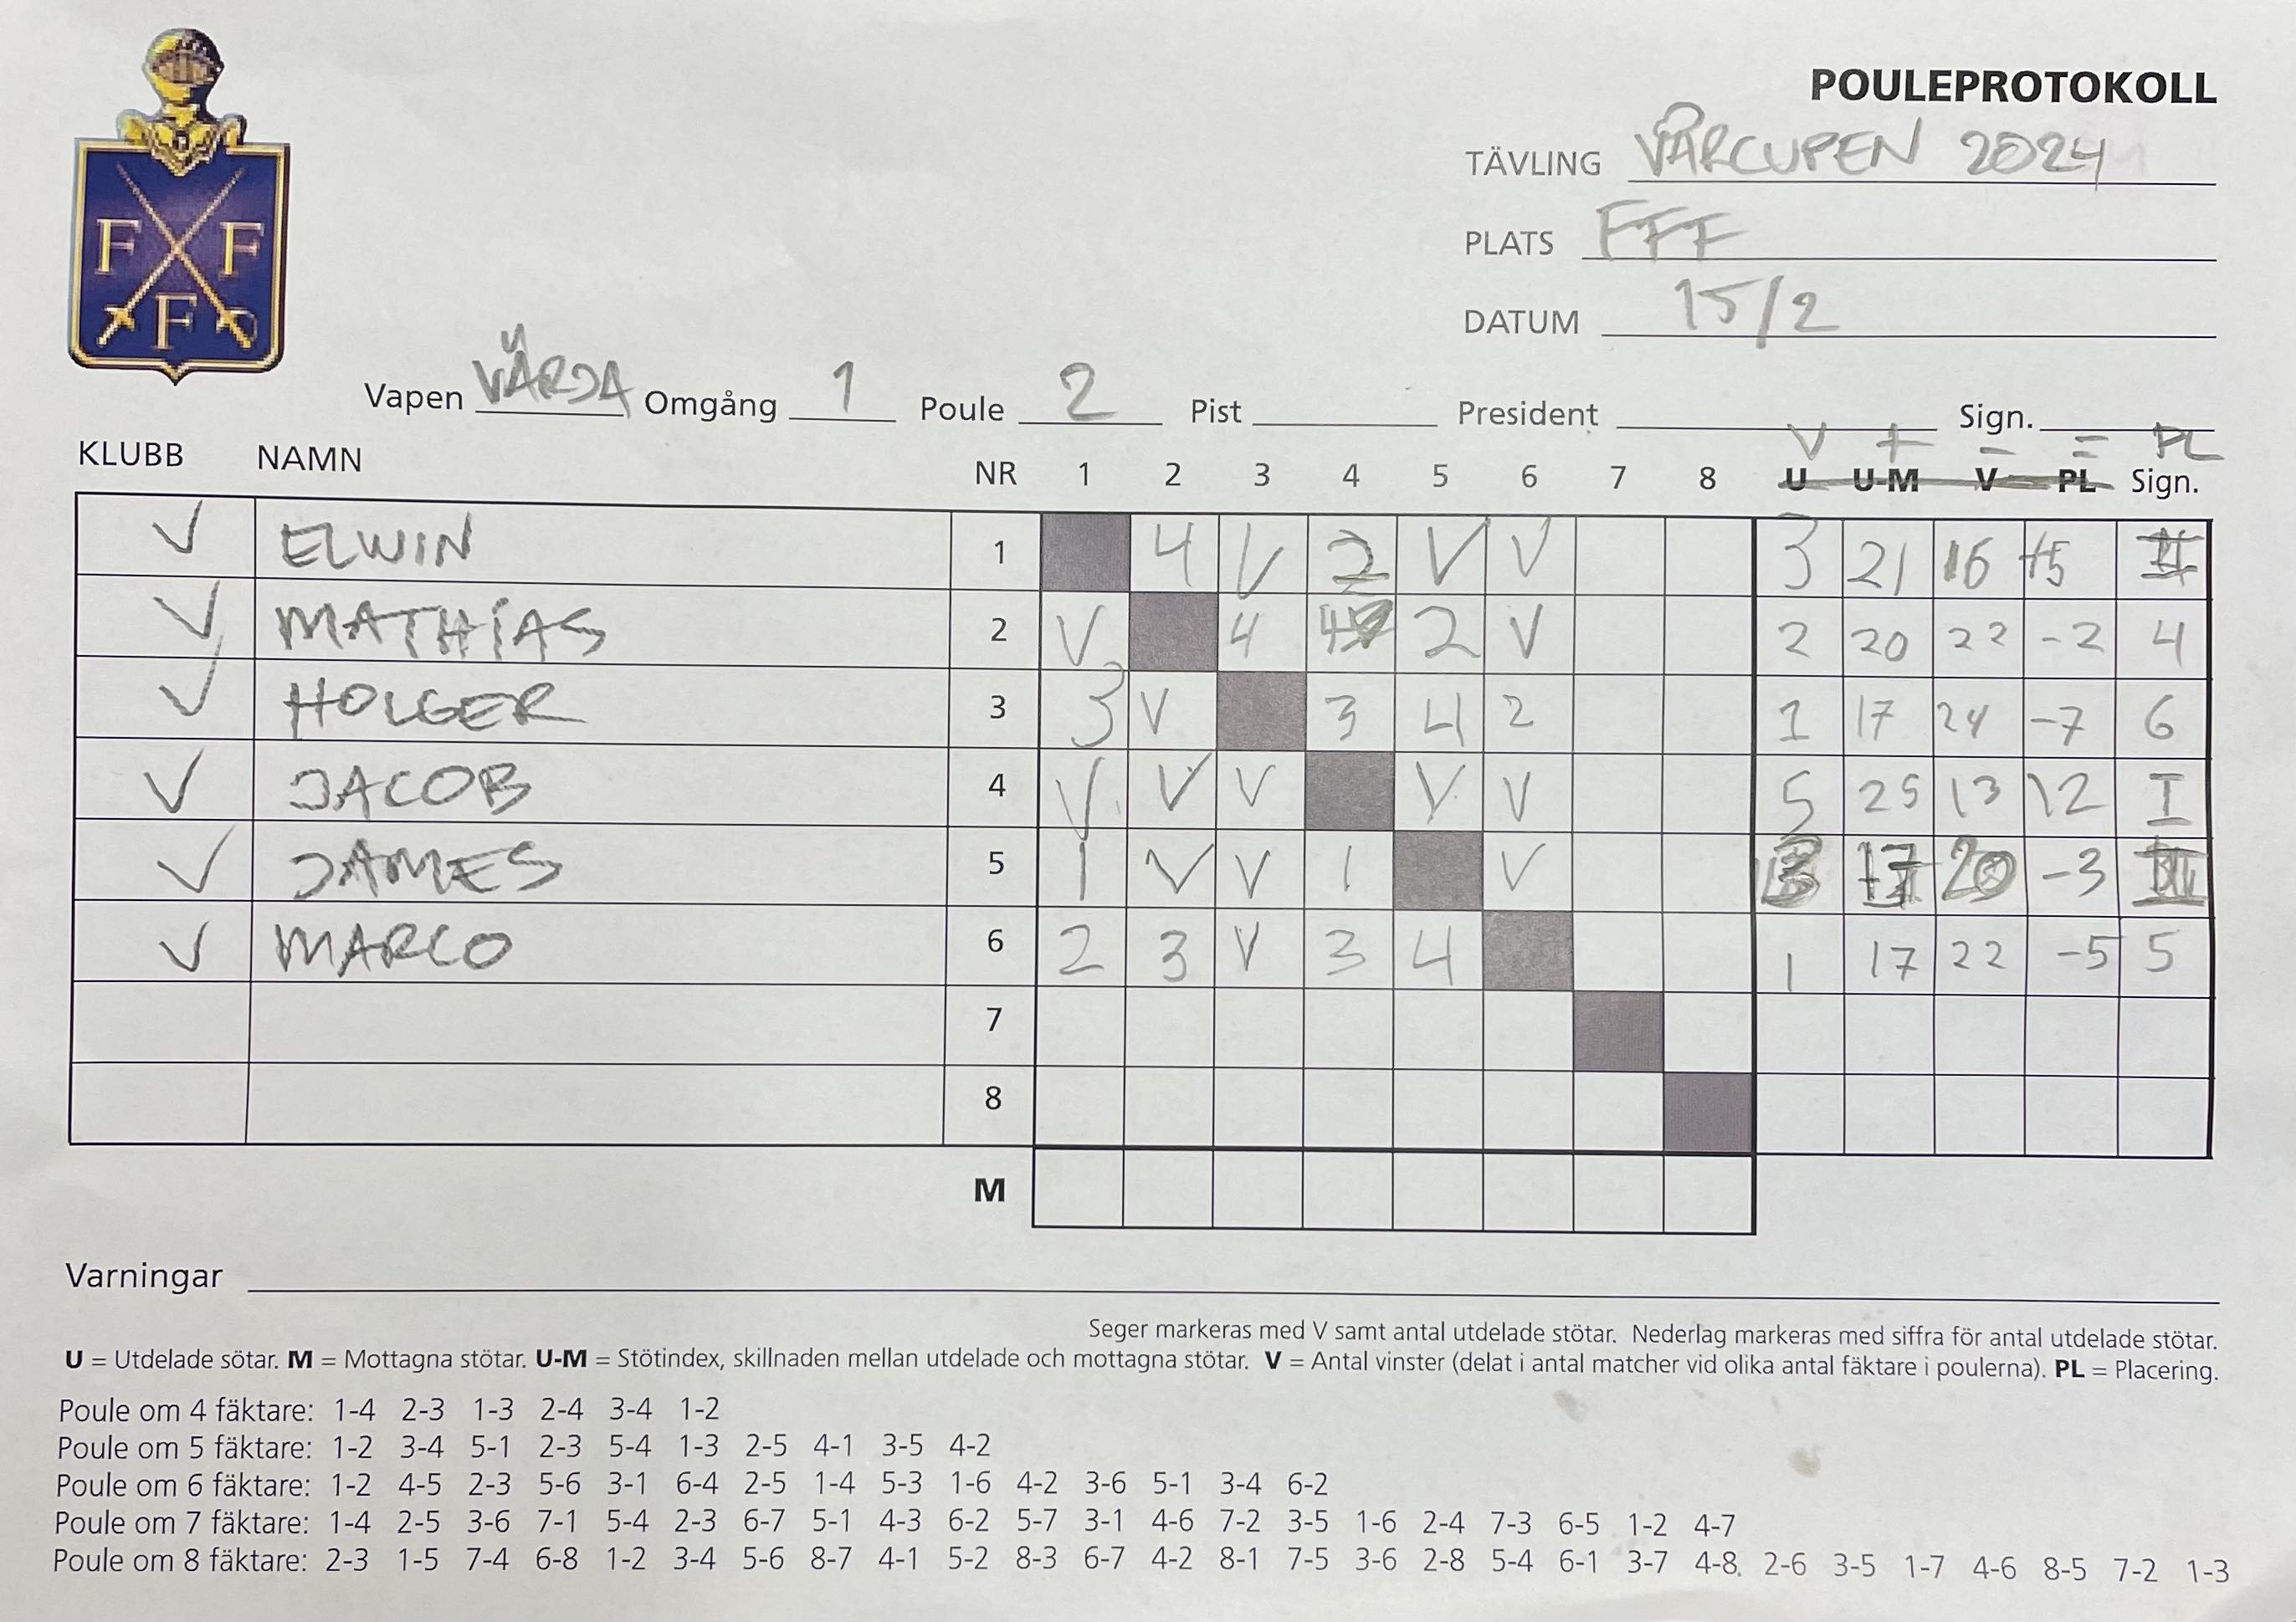 POULEPROTOKOLL
TÄVLING VÅRCUPEN 2024
PLATS FFF
DATUM 15/2
F F
F
Vapen VÄRJA Omgång 1 Poule 2 Pist President Sign.
V + − = PL
KLUBB NAMN NR 1 2 3 4 5 6 7 8 U U-M V PL Sign.
V ELWIN 1 4 V 2 V V 3 21 16 +5 II
V MATHÍAS 2 V 4 4 2 V 2 20 22 -2 4
V HOLGER 3 3 V 3 4 2 1 17 24 -7 6
V JACOB 4 V V V V V 5 25 13 12 I
V JAMES 5 1 V V 1 V 3 17 20 -3 III
V MARCO 6 2 3 V 3 4 1 17 22 -5 5
7
8
M
Varningar
Seger markeras med V samt antal utdelade stötar. Nederlag markeras med siffra för antal utdelade stötar.
U = Utdelade sötar. M = Mottagna stötar. U-M = Stötindex, skillnaden mellan utdelade och mottagna stötar. V = Antal vinster (delat i antal matcher vid olika antal fäktare i poulerna). PL = Placering.
Poule om 4 fäktare: 1-4 2-3 1-3 2-4 3-4 1-2
Poule om 5 fäktare: 1-2 3-4 5-1 2-3 5-4 1-3 2-5 4-1 3-5 4-2
Poule om 6 fäktare: 1-2 4-5 2-3 5-6 3-1 6-4 2-5 1-4 5-3 1-6 4-2 3-6 5-1 3-4 6-2
Poule om 7 fäktare: 1-4 2-5 3-6 7-1 5-4 2-3 6-7 5-1 4-3 6-2 5-7 3-1 4-6 7-2 3-5 1-6 2-4 7-3 6-5 1-2 4-7
Poule om 8 fäktare: 2-3 1-5 7-4 6-8 1-2 3-4 5-6 8-7 4-1 5-2 8-3 6-7 4-2 8-1 7-5 3-6 2-8 5-4 6-1 3-7 4-8 2-6 3-5 1-7 4-6 8-5 7-2 1-3